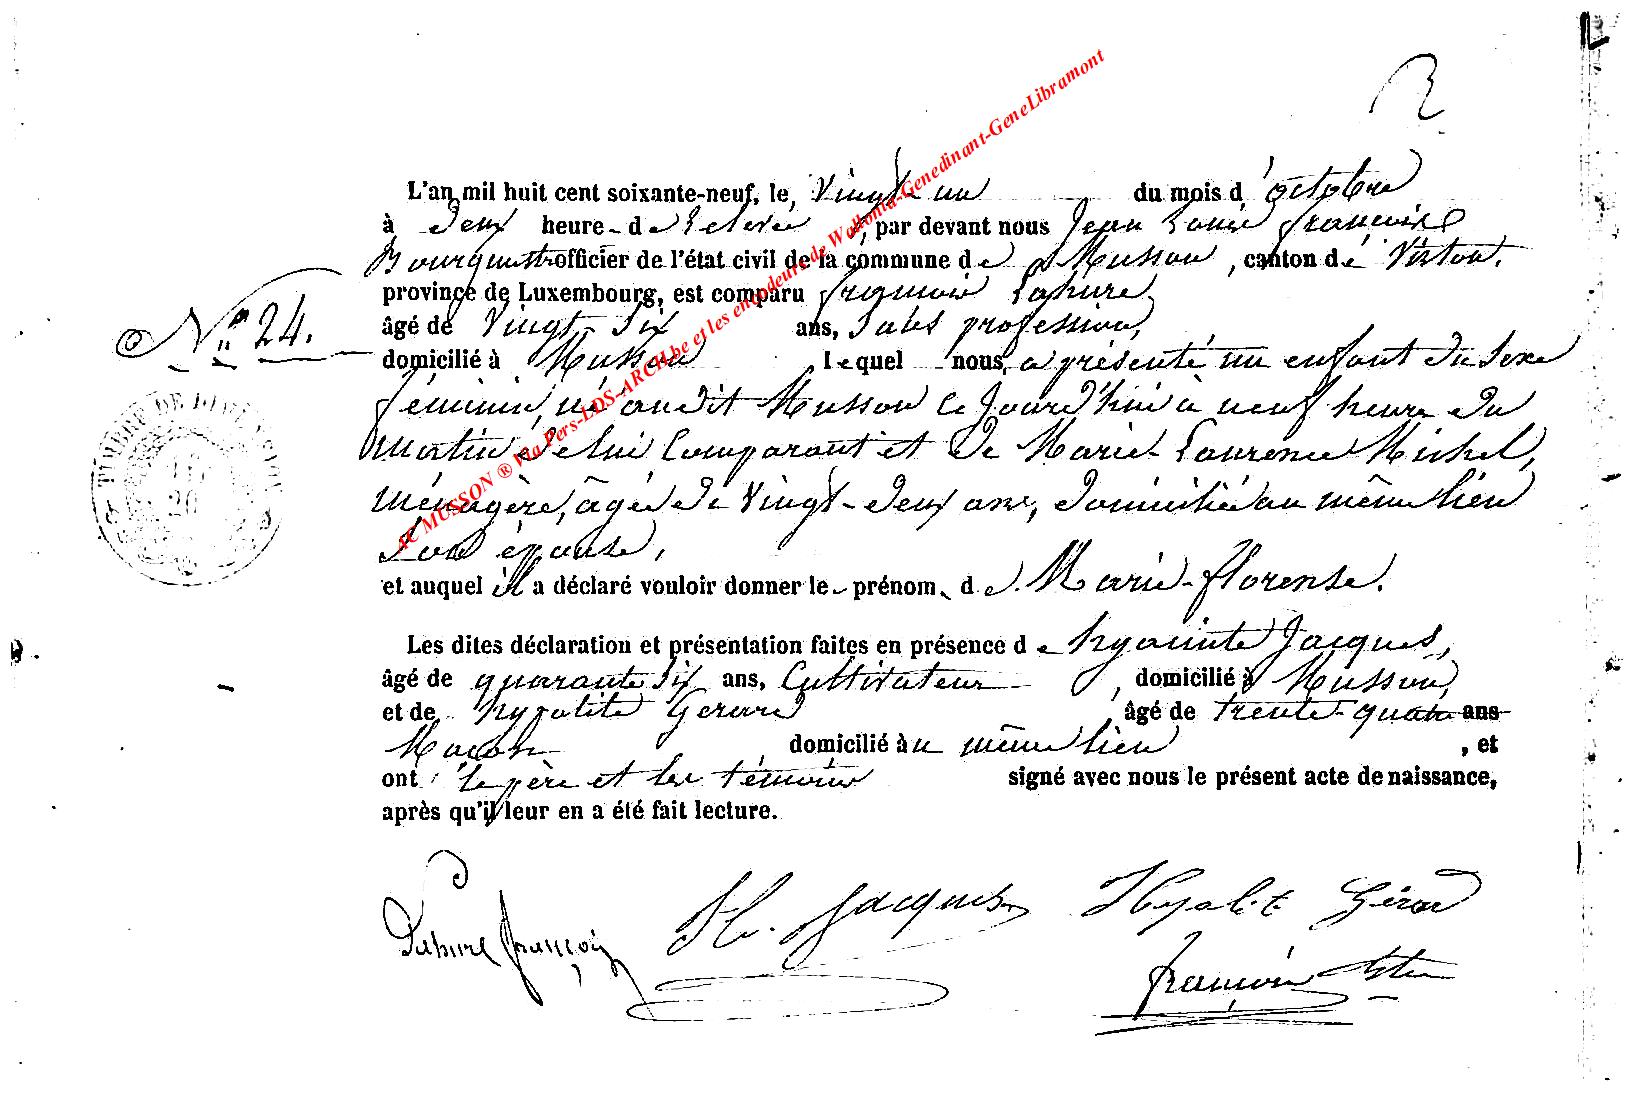 L'an mil huit cent soixante-neuf, le, Vingt un du mois d'octobre
à deux heure - de Relevée, par devant nous Jean Louis François
Bourguet officier de l'état civil de la commune de Musson, canton de Virton,
province de Luxembourg, est comparu François Lahure,
Nº 24.
âgé de Vingt-Six ans, Sans profession,
domicilié à Musson lequel nous, a présenté un enfant du sexe
féminin, né audit Musson ce Jourd'hui à neuf heure du
matin de lui Comparant et de Marie-Laurence Michel,
ménagère, âgée de Vingt-deux ans, domiciliée au même lieu
Son épouse,
et auquel il a déclaré vouloir donner le - prénom, de Marie-florense.
Les dites déclaration et présentation faites en présence de hyacinte Jacques,
âgé de quarante Six ans, Cultivateur, domicilié à Musson,
et de hypolite Gerard âgé de trente-quatre ans
Macon domicilié au même lieu, et
ont le père et les témoins signé avec nous le présent acte de naissance,
après qu'il leur en a été fait lecture.
Lahure françois H. Jacques Hypolite Gérard
françois
TIMBRE DE DIMENSION
AC MUSSON ® Via Pers-LDS-ARCH.be et les encodeurs de Wallonia-Genedinant-GeneLibramont